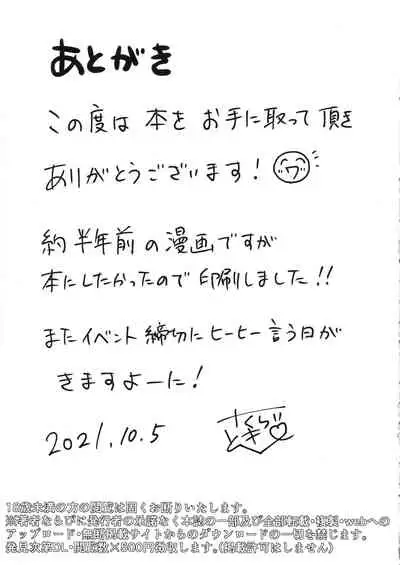 あとがき
この度は 本を お手に取って 頂き
ありがとうございます!
約半年前の漫画ですが
本にしたかったので 印刷しました!!
またイベント締切にヒーヒー言う日が
きますよーに!
2021.10.5
18歳未満の方の閲覧は固くお断りいたします。
※著者ならびに発行者の承諾なく本誌の一部及び全部転載・複製・webへの
アップロード・無断掲載サイトからのダウンロードの一切を禁じます。
発見次第DL・閲覧数×500円徴収します。(掲載許可はしません)